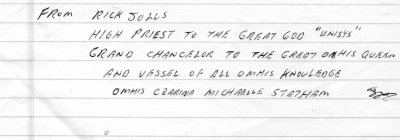 FROM RICK JOLLS
HIGH PRIEST TO THE GREAT GOD "UNISYS"
GRAND CHANCELOR TO THE GREAT OMHIS QUEEN
AND VESSEL OF ALL OMHIS KNOWLEDGE
OMHIS CZARINA MICHAELLE STATHAM